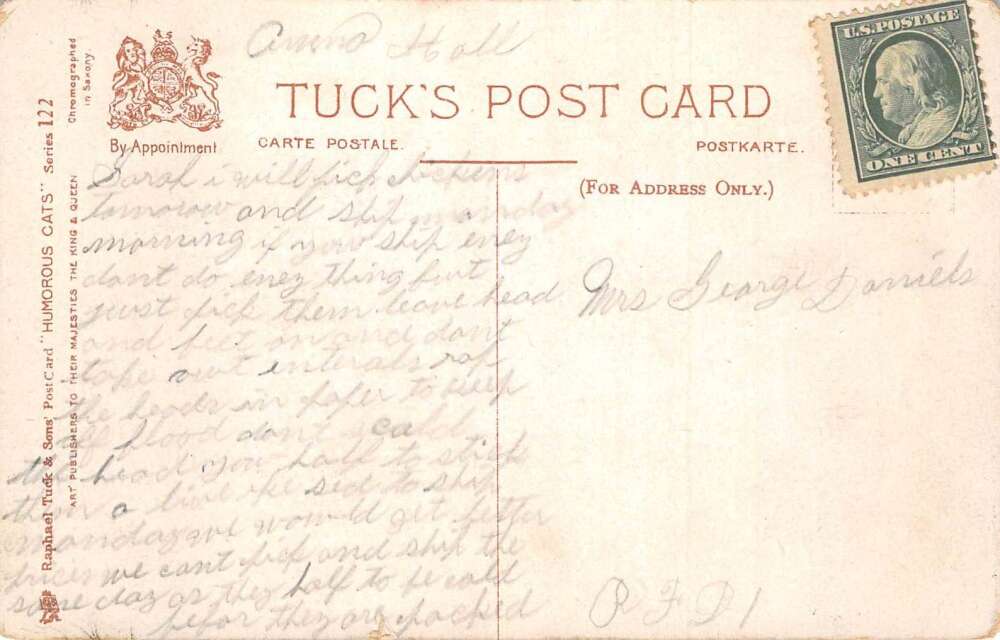 Anna Hall
U.S. POSTAGE
ONE CENT
TUCK'S POST CARD
By Appointment
CARTE POSTALE.
POSTKARTE.
(FOR ADDRESS ONLY.)
Raphael Tuck & Sons' Post Card "HUMOROUS CATS" Series 122
ART PUBLISHERS TO THEIR MAJESTIES THE KING & QUEEN
Chromographed
in Saxony.
Sarah i will pick chickens
tomorow and ship monday
morning if you ship eney
dont do eney thing but
just pick them leave head
and feet on and dont
take out interals rap
the heads in paper to keep
off blood dont scald
the head you half to stick
them a live he sed to ship
monday we would get better
prices we cant pick and ship the
same day as they half to be cold
befor they are packed
Mrs George Daniels
RFD 1